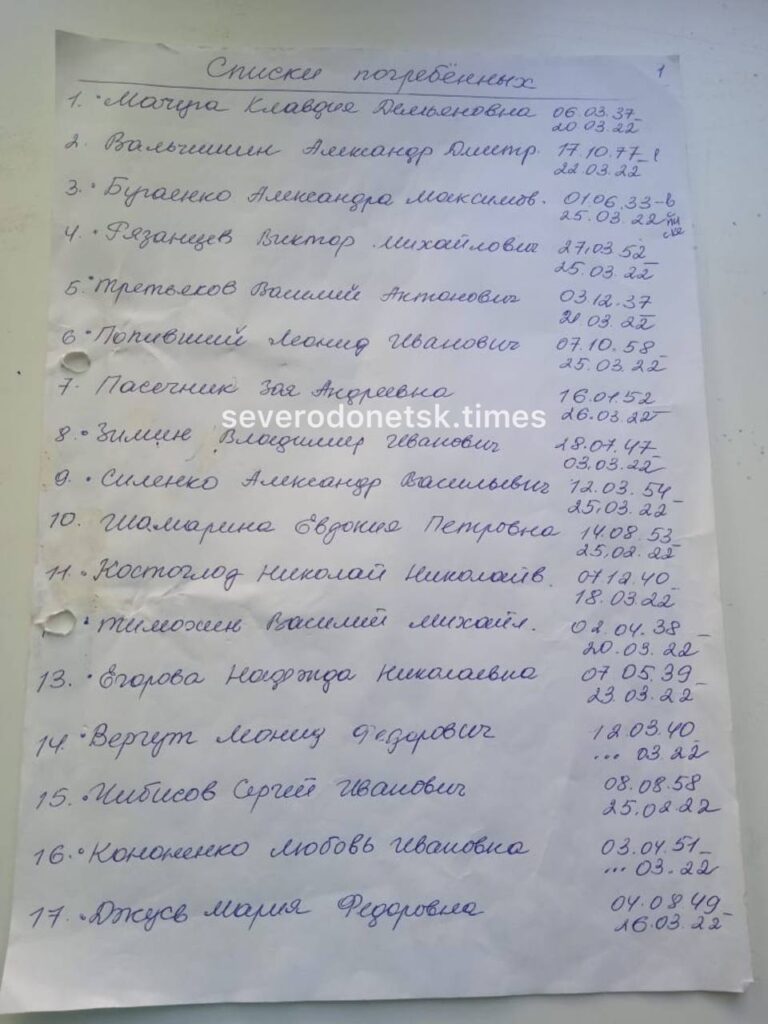 Списки погребённых 1
1. Мачуга Клавдия Демьяновна 06.03.37-
20.03.22
2. Вальчишин Александр Дмитр. 17.10.77-
22.03.22
3. Бугаенко Александра Максимов. 01.06.33-
25.03.22
4. Рязанцев Виктор Михайлович 27.03.52-
25.03.22
5. Третьяков Василий Антонович 03.12.37
21.03.22
6. Попивший Леонид Иванович 07.10.58-
25.03.22
7. Пасечник Зоя Андреевна 16.01.52
26.03.22
severodonetsk.times
8. Зимин Владимир Иванович 28.07.47-
03.03.22
9. Силенко Александр Васильевич 12.03.54-
25.03.22
10. Шамарина Евдокия Петровна 14.08.53-
25.02.22
11. Костоглод Николай Николайв. 07.12.40-
18.03.22
Тимохин Василий Михайл. 02.04.38-
20.03.22
13. Егорова Надежда Николаевна 07 05.39-
23.03.22
14. Вергут Леонид Федорович 12.03.40-
... 03.22
15. Чибисов Сергей Иванович 08.08.58
25.02.22
16. Кононенко Любовь Ивановна 03.04.51-
... 03.22
17. Джусь Мария Федоровна 04.08.49-
26.03.22